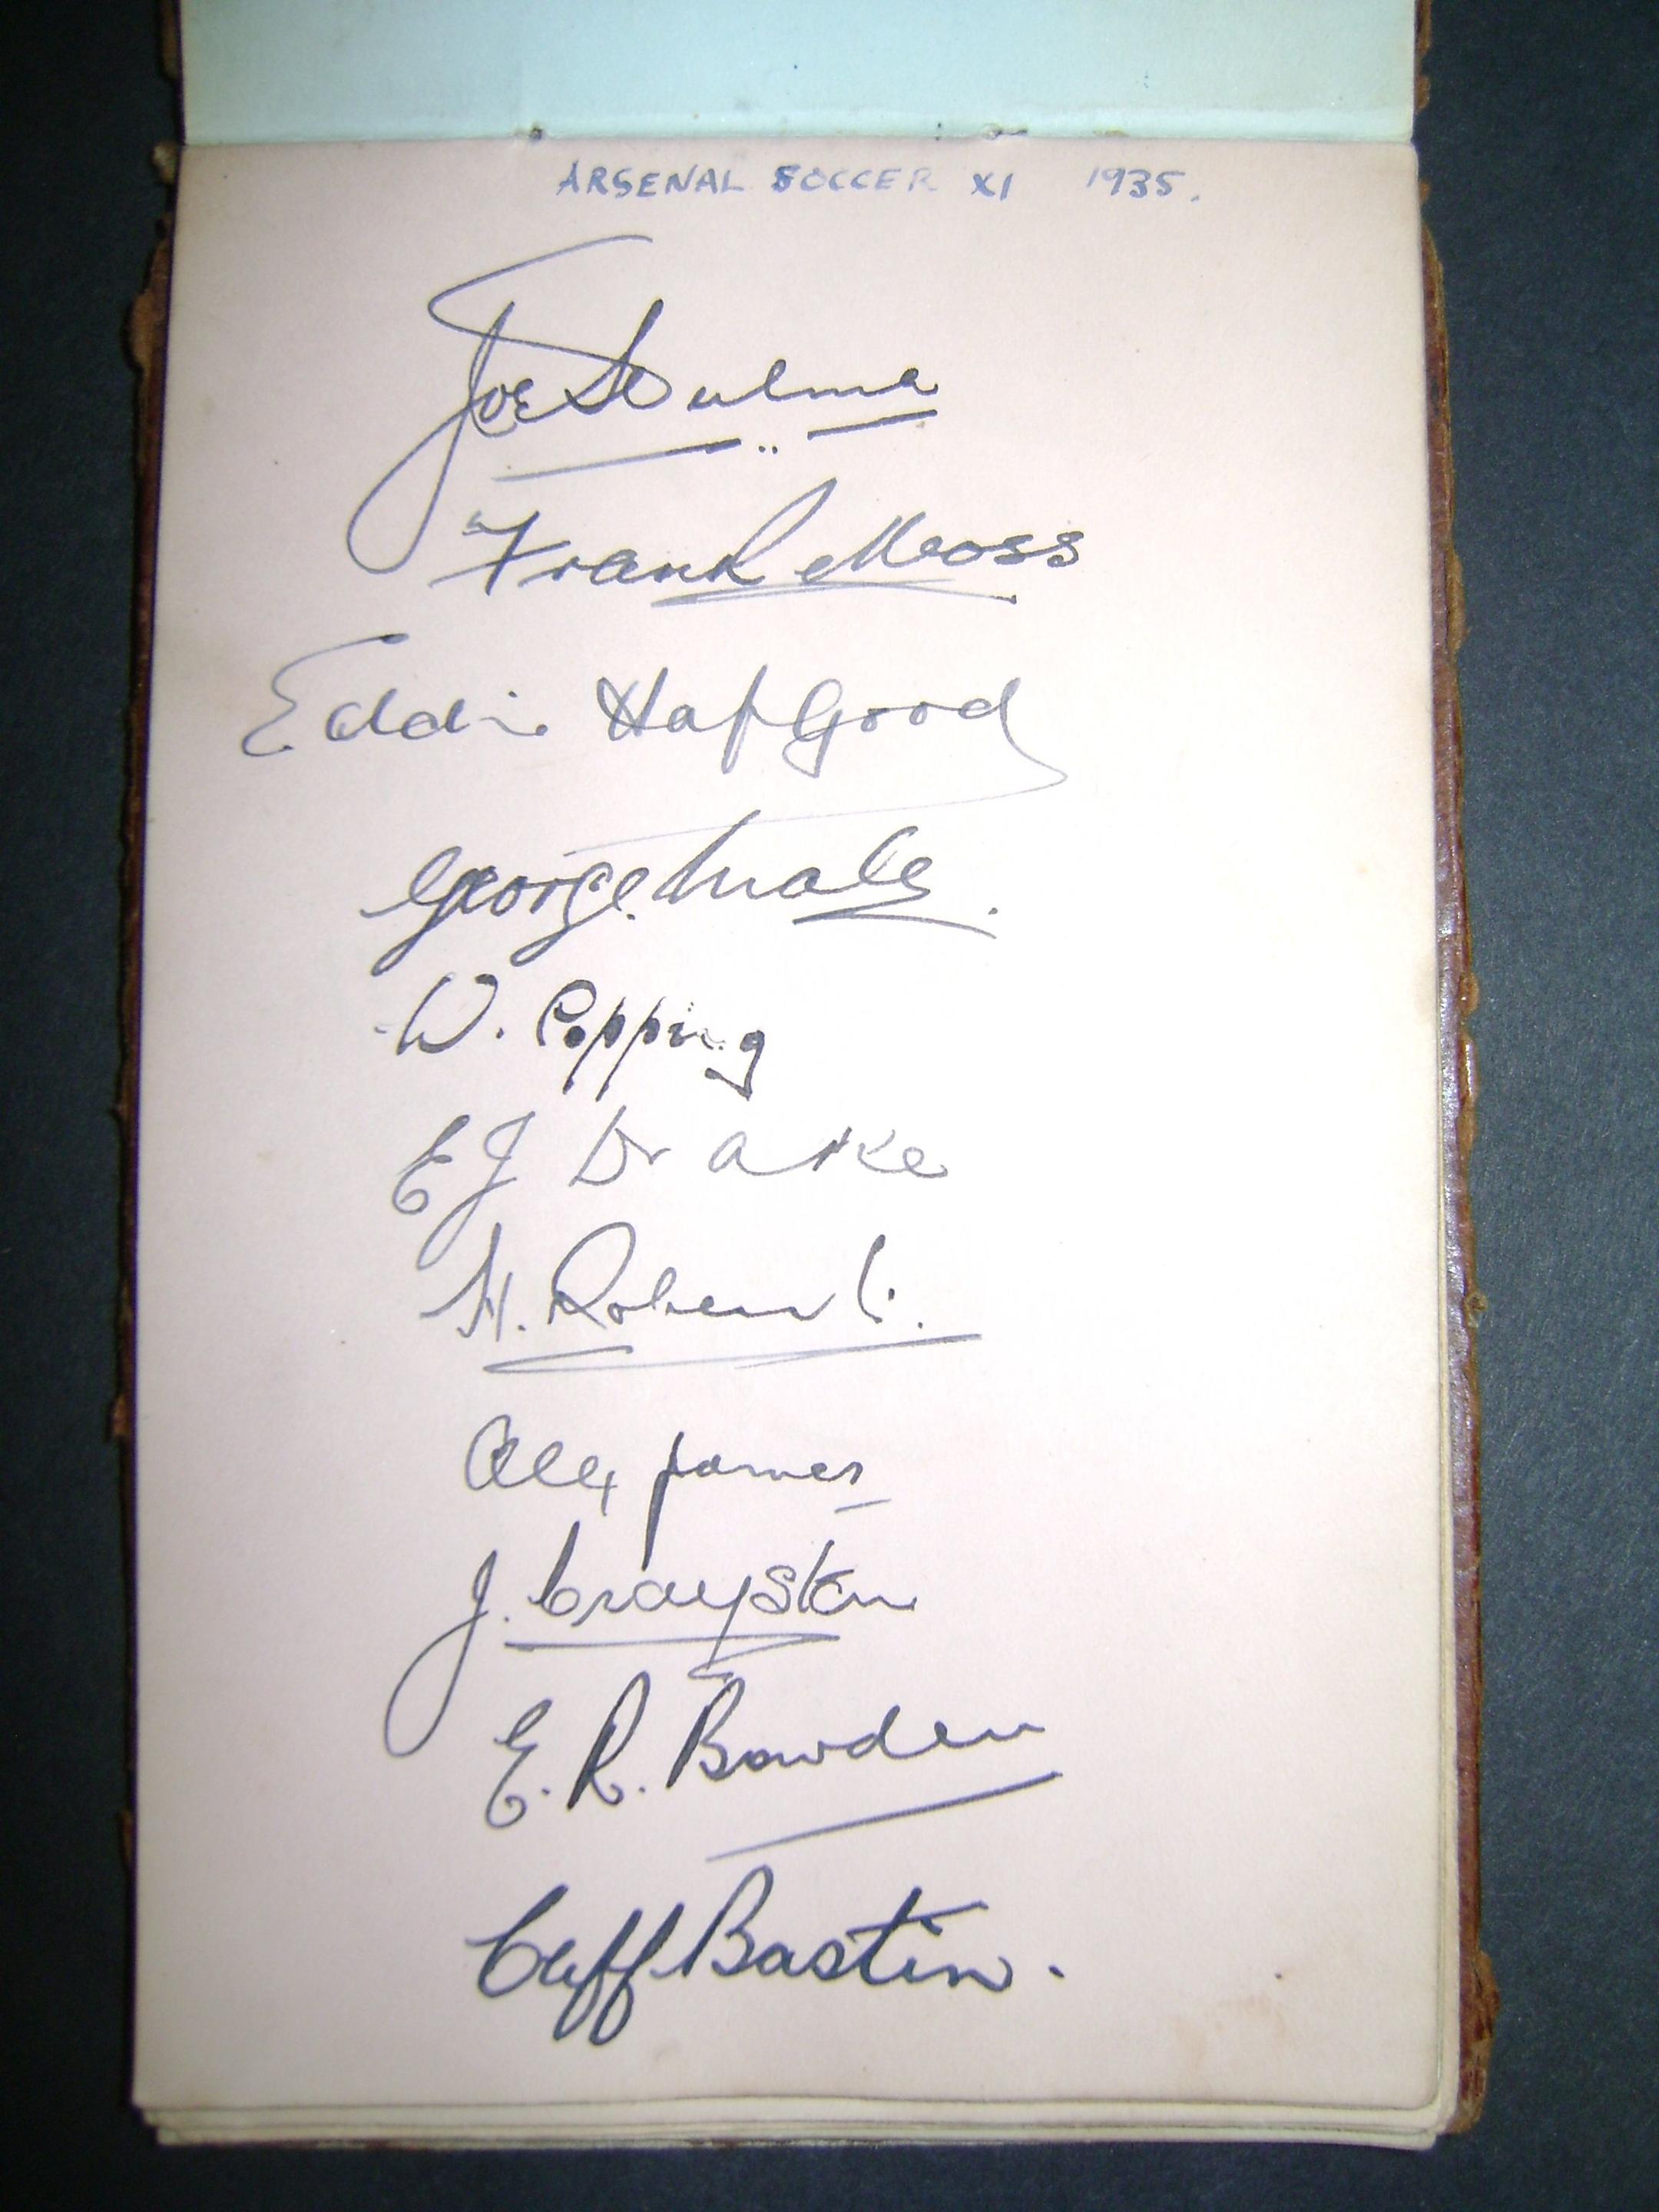 ARSENAL SOCCER XI 1935.
Joe Hulme
Frank Moss
Eddie Hapgood
George Male.
W. Copping
E J Drake
H. Roberts.
Alex James
J. Crayston
E. R. Bowden
Cliff Bastin.